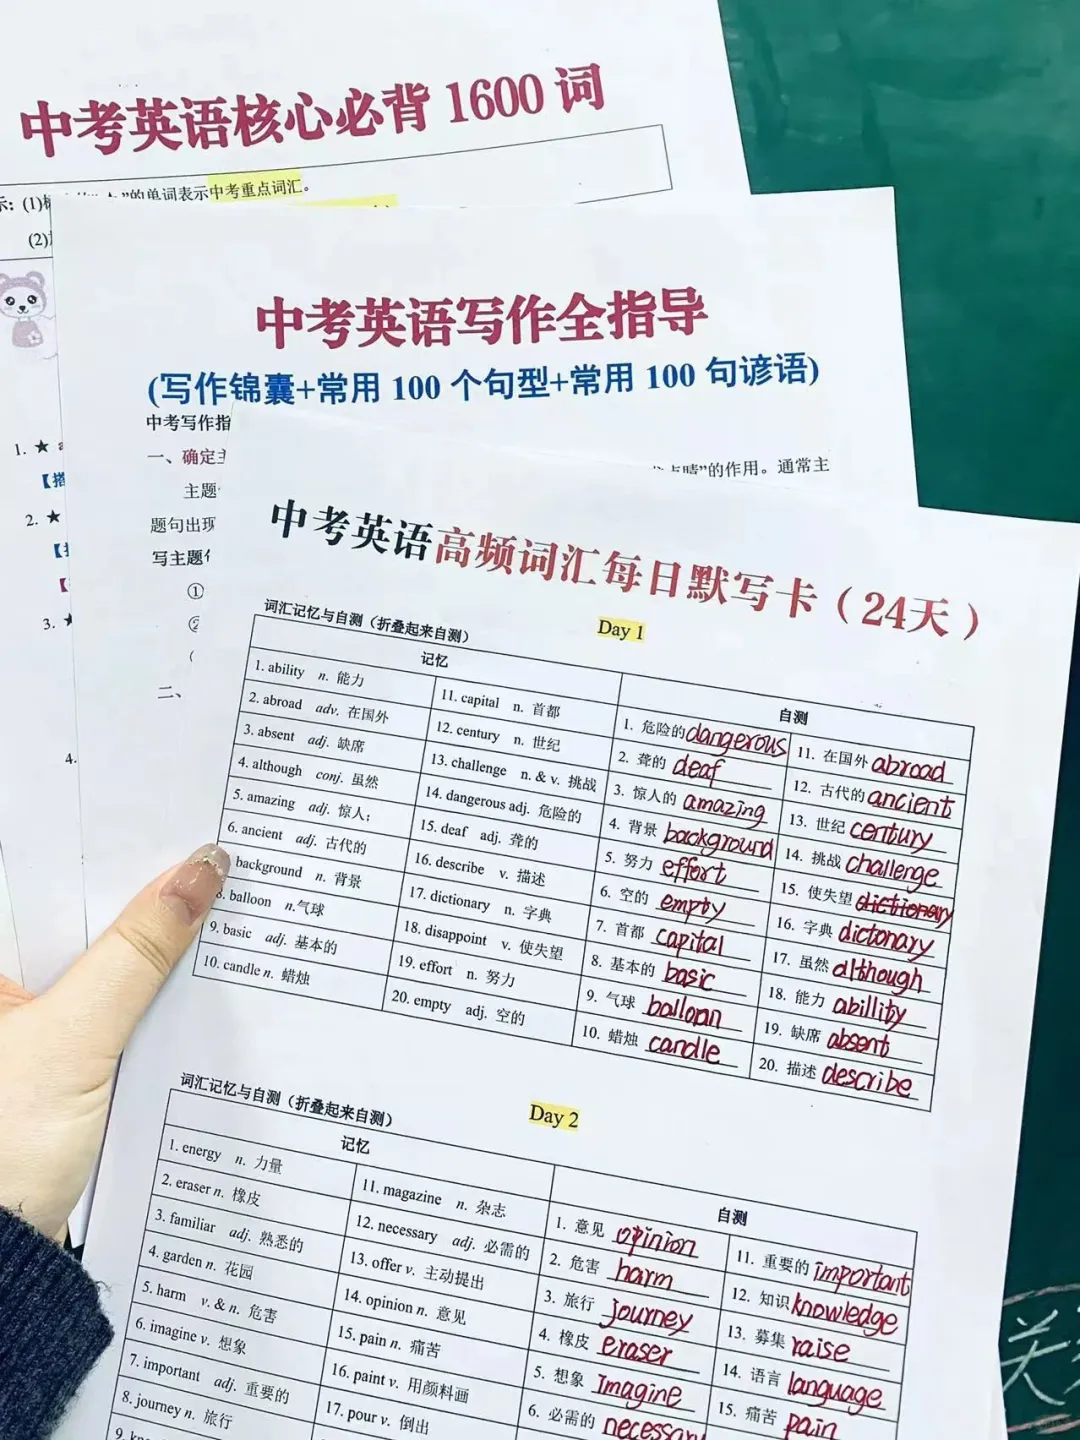 中考英语核心必背1600词
示: (1)标 的单词表示中考重点词汇。
(2)
1. ★ a
【搭
2. ★
3.
4.
中考英语写作全指导
(写作锦囊+常用 100 个句型+常用 100 句谚语)
中考写作指
一、确定主
主题 点睛”的作用。通常主
题句出现
写主题
①
②
二、
中考英语高频词汇每日默写卡（24天）
词汇记忆与自测（折叠起来自测）
Day 1
记忆
自测
1. ability n. 能力
2. abroad adv. 在国外
3. absent adj. 缺席
4. although conj. 虽然
5. amazing adj. 惊人；
6. ancient adj. 古代的
background n. 背景
8. balloon n.气球
9. basic adj. 基本的
10. candle n. 蜡烛
11. capital n. 首都
12. century n. 世纪
13. challenge n. & v. 挑战
14. dangerous adj. 危险的
15. deaf adj. 聋的
16. describe v. 描述
17. dictionary n. 字典
18. disappoint v. 使失望
19. effort n. 努力
20. empty adj. 空的
1. 危险的 dangerous
2. 聋的 deaf
3. 惊人的 amazing
4. 背景 background
5. 努力 effort
6. 空的 empty
7. 首都 capital
8. 基本的 basic
9. 气球 balloon
10. 蜡烛 candle
11. 在国外 abroad
12. 古代的 ancient
13. 世纪 century
14. 挑战 challenge
15. 使失望 dictionary
16. 字典 dictonary
17. 虽然 although
18. 能力 abillity
19. 缺席 absent
20. 描述 describe
词汇记忆与自测（折叠起来自测）
Day 2
记忆
自测
1. energy n. 力量
2. eraser n. 橡皮
3. familiar adj. 熟悉的
4. garden n. 花园
5. harm v. & n. 危害
6. imagine v. 想象
7. important adj. 重要的
8. journey n. 旅行
9.
11. magazine n. 杂志
12. necessary adj. 必需的
13. offer v. 主动提出
14. opinion n. 意见
15. pain n. 痛苦
16. paint v. 用颜料画
17. pour v. 倒出
1. 意见 opinion
2. 危害 harm
3. 旅行 journey
4. 橡皮 eraser
5. 想象 Imagine
6. 必需的 necessary
11. 重要的 important
12. 知识 knowledge
13. 募集 raise
14. 语言 language
15. 痛苦 pain
关